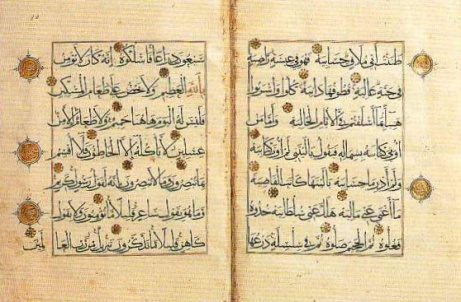 ظننت أني ملاق حسابيه فهو في عيشة راضية
في جنة عالية قطوفها دانية كلوا واشربوا
هنيئا بما أسلفتم في الأيام الخالية وأما من
أوتي كتابه بشماله فيقول يا ليتني لم أوت كتابيه
ولم أدر ما حسابيه يا ليتها كانت القاضية
ما أغنى عني ماليه هلك عني سلطانيه خذوه
فغلوه ثم الجحيم صلوه ثم في سلسلة ذرعها
سبعون ذراعا فاسلكوه إنه كان لا يؤمن
بالله العظيم ولا يحض على طعام المسكين
فليس له اليوم ههنا حميم ولا طعام إلا من
غسلين لا يأكله إلا الخاطئون فلا أقسم
بما تبصرون وما لا تبصرون إنه لقول رسول كريم
وما هو بقول شاعر قليلا ما تؤمنون ولا بقول
كاهن قليلا ما تذكرون تنزيل من رب العا
لمين